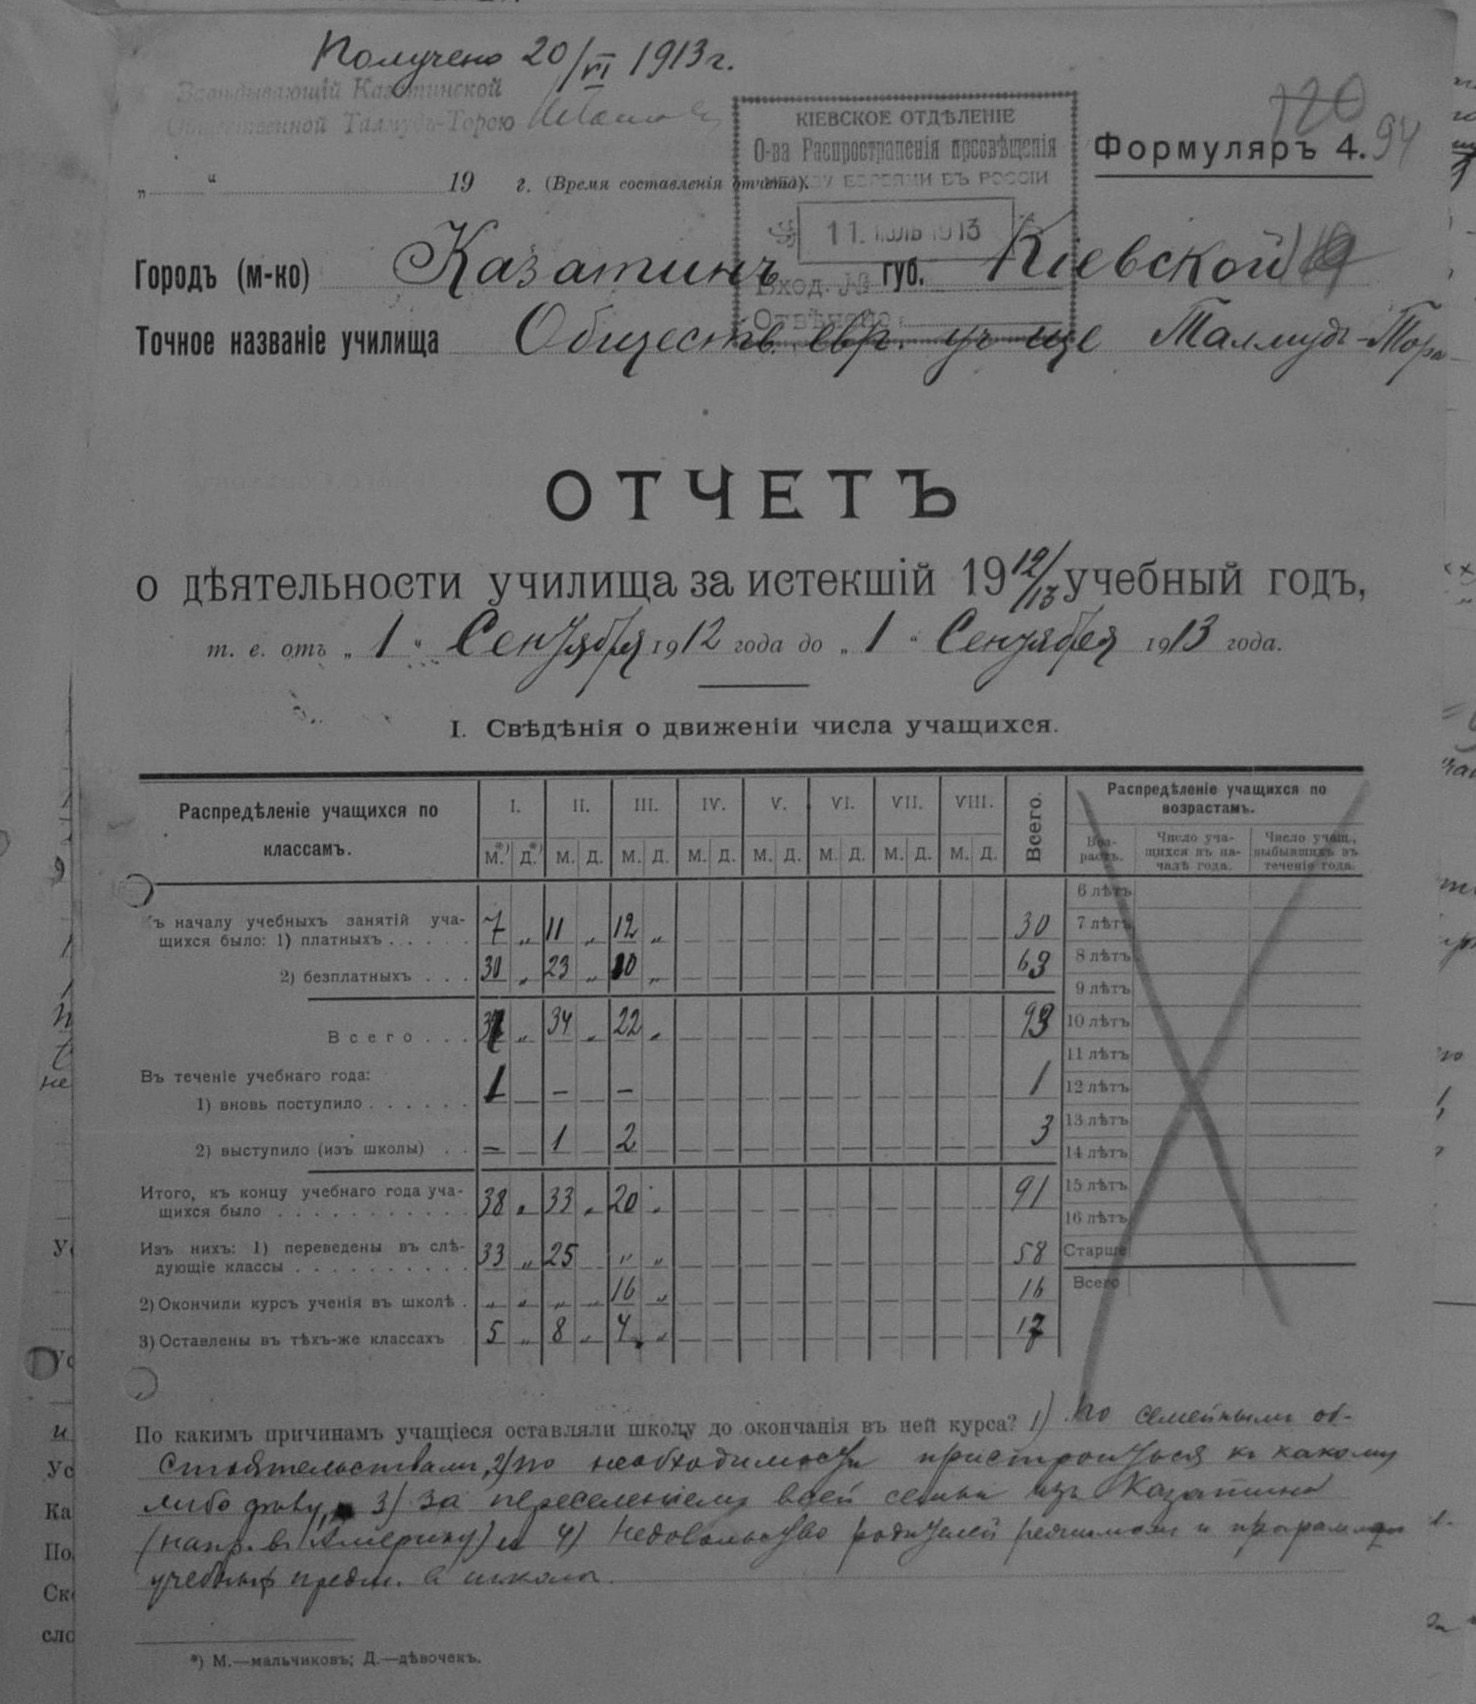 Получено 20/VI 1913 г.
Завѣдывающій Казатинской
Общественной Талмудъ-Торою
КІЕВСКОЕ ОТДѢЛЕНІЕ
О-ва Распространенія просвѣщенія
МЕЖДУ ЕВРЕЯМИ ВЪ РОССІИ
11 ІЮЛЬ 1913
Вход. №
Отвѣчено
120
94
Формуляръ 4.
„ “ 19 г. (Время составленія отчета).
Городъ (м-ко) Казатинъ губ. Кіевской
Точное названіе училища Обществ. евр. уч-ще Талмудъ-Тора
ОТЧЕТЪ
о дѣятельности училища за истекшій 1912/13 учебный годъ,
т. е. отъ „1“ Сентября 1912 года до „1“ Сентября 1913 года.
I. Свѣдѣнія о движеніи числа учащихся.
Распредѣленіе учащихся по классамъ. I. II. III. IV. V. VI. VII. VIII. Всего.
М.*) Д.*) М. Д. М. Д. М. Д. М. Д. М. Д. М. Д. М. Д.
Къ началу учебныхъ занятій уча-
щихся было: 1) платныхъ . . . . . 7 „ 11 „ 12 „ — — — — — — — — — — 30
2) безплатныхъ . . . 30 „ 23 „ 10 „ — — — — — — — — — — 63
Всего . . . 37 „ 34 „ 22 „ — — — — — — — — — — 93
Въ теченіе учебнаго года:
1) вновь поступило . . . . . . 1 — — — — — — — — — — — — — — — 1
2) выступило (изъ школы) . . — — 1 — 2 — — — — — — — — — — — 3
Итого, къ концу учебнаго года уча-
щихся было . . . . . . . . . . . 38 „ 33 „ 20 „ — — — — — — — — — — 91
Изъ нихъ: 1) переведены въ слѣ-
дующіе классы . . . . . . . . . . 33 „ 25 — „ „ — — — — — — — — — — 58
2) Окончили курсъ ученія въ школѣ . „ „ „ „ 16 „ — — — — — — — — — — 16
3) Оставлены въ тѣхъ-же классахъ . 5 „ 8 „ 4 „ — — — — — — — — — — 17
Распредѣленіе учащихся по
возрастамъ.
Воз-
растъ.
Число уча-
щихся въ на-
чалѣ года.
Число учащ.,
выбывшихъ въ
теченіе года.
6 лѣтъ
7 лѣтъ
8 лѣтъ
9 лѣтъ
10 лѣтъ
11 лѣтъ
12 лѣтъ
13 лѣтъ
14 лѣтъ
15 лѣтъ
16 лѣтъ
Старше
Всего
По какимъ причинамъ учащіеся оставляли школу до окончанія въ ней курса? 1) По семейнымъ об-
стоятельствамъ, 2) по необходимости пристроиться къ какому
либо дѣлу, 3) за переселеніемъ всей семьи изъ Казатина
(напр. въ Америку) и 4) Недовольство родителей режимомъ и програм.
учебныхъ предм. въ школѣ.
*) М.—мальчиковъ; Д.—дѣвочекъ.